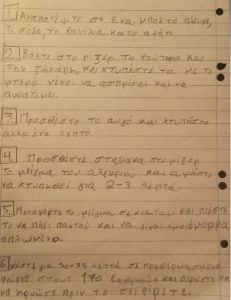 1. Ανακατέψτε σε ένα μπολ το αλεύρι,
τη σόδα, τη βανίλια και το αλάτι.
2. Βάλτε στο μίξερ το βούτυρο και
την ζάχαρη και χτυπήστε τα με το
φτερό μέχρι να ασπρίσει και να
αφρατέψει.
3. Προσθέστε το αυγό και χτυπήστε
άλλο ένα λεπτό.
4. Προσθέστε στο μίξερ
το μείγμα του αλευριού και αφήστε
να χτυπηθεί για 2-3 λεπτά.
5. Μεταφέρετε το μείγμα σε και πιέστε
το να πάει παντού και να είναι ομοιόμορφα
απλωμένο.
6. Ψήστε για 30-35 λεπτά σε προθερμασμένο
φούρνο στους 170 βαθμούς και αφήστε το
να κρυώσει πριν το σερβίρετε.